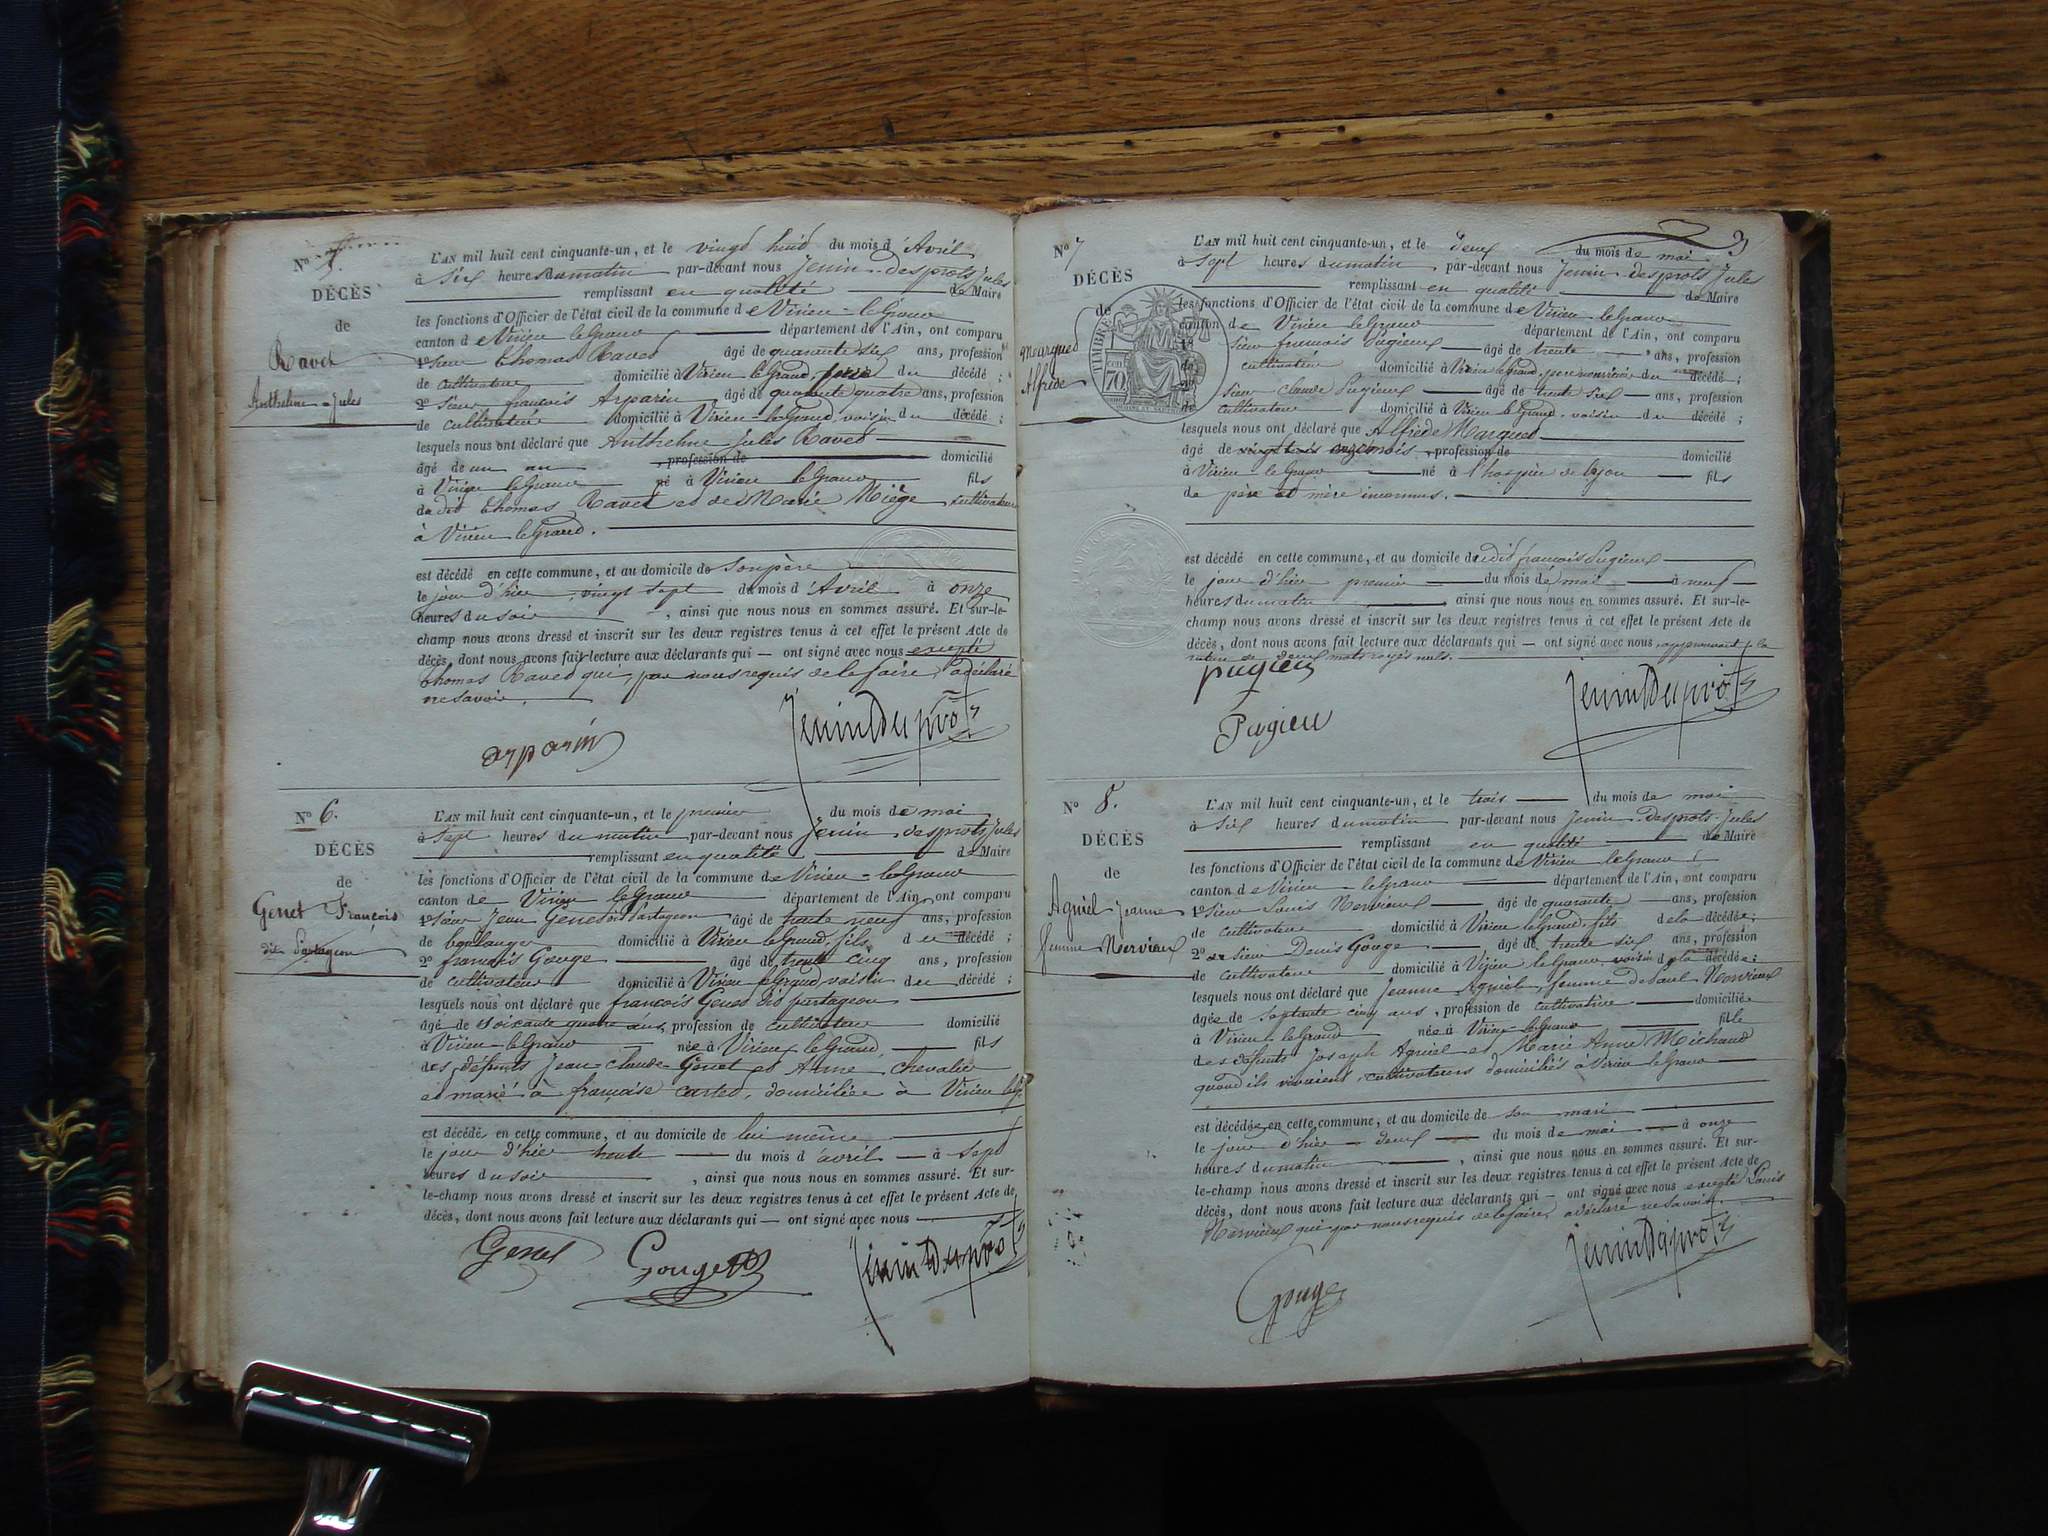 No 5.
DÉCÈS
de
Ravet
Anthelme-Jules
L'AN mil huit cent cinquante-un, et le vingt huit du mois d'Avril
à six heures du matin par-devant nous Jenin-desprots Jules
remplissant en qualité de Maire
les fonctions d'Officier de l'état civil de la commune de Virieu-leGrand
canton de Virieu leGrand département de l'Ain, ont comparu
1o Sieur Thomas Ravet âgé de quarante six ans, profession
de cultivateur domicilié à Virieu leGrand, père du décédé ;
2o Sieur françois Arparin âgé de quarante quatre ans, profession
de cultivateur domicilié à Virieu-leGrand, voisin du décédé ;
lesquels nous ont déclaré que Anthelme jules Ravet
âgé de un an profession de domicilié
à Virieu leGrand né à Virieu leGrand fils
du dit Thomas Ravet et de Marie Miège cultivateurs
à Virieu leGrand.
est décédé en cette commune, et au domicile de son père
le jour d'hier, vingt sept du mois d'Avril à onze
heures du soir, ainsi que nous nous en sommes assuré. Et sur-le-
champ nous avons dressé et inscrit sur les deux registres tenus à cet effet le présent Acte de
décès, dont nous avons fait lecture aux déclarants qui — ont signé avec nous excepté
Thomas Ravet qui, par nous requis de le faire, a déclaré
ne savoir.
arparin JeninDesprots
No 6.
DÉCÈS
de
Genet François
dit Partageon
L'AN mil huit cent cinquante-un, et le premier du mois de mai
à sept heures du matin par-devant nous Jenin desprots Jules
remplissant en qualité de Maire
les fonctions d'Officier de l'état civil de la commune de Virieu-leGrand
canton de Virieu leGrand département de l'Ain, ont comparu
1o Sieur Jean Genet dit Partageon âgé de trente neuf ans, profession
de boulanger domicilié à Virieu leGrand, fils du décédé ;
2o françois Gouge âgé de trente cinq ans, profession
de cultivateur domicilié à Virieu leGrand, voisin du décédé ;
lesquels nous ont déclaré que françois Genet dit partageon
âgé de soixante quatre ans, profession de cultivateur domicilié
à Virieu-leGrand né à Virieu leGrand, fils
des défunts Jean-claude Genet et Anne chevalier
et marié à françoise cartet, domiciliée à Virieu leG.
est décédé en cette commune, et au domicile de lui même
le jour d'hier trente du mois d'avril à sept
heures du soir, ainsi que nous nous en sommes assuré. Et sur-
le-champ nous avons dressé et inscrit sur les deux registres tenus à cet effet le présent Acte de
décès, dont nous avons fait lecture aux déclarants qui — ont signé avec nous
Genet Gouge JeninDesprots
3
No 7
DÉCÈS
de
Marquet
Alfrède
TIMBRE
70
L'AN mil huit cent cinquante-un, et le deux du mois de mai
à sept heures du matin par-devant nous Jenin-desprots Jules
remplissant en qualité de Maire
les fonctions d'Officier de l'état civil de la commune de Virieu-leGrand
canton de Virieu leGrand département de l'Ain, ont comparu
Sieur françois Pugieux âgé de trente ans, profession
cultivateur domicilié à Virieu leGrand, père nourricier du décédé ;
Sieur claude Pugieux âgé de trente six ans, profession
de cultivateur domicilié à Virieu leGrand, voisin du décédé ;
lesquels nous ont déclaré que Alfrède Marquet
âgé de onze mois, profession de domicilié
à Virieu leGrand né à l'hospice de Lyon fils
de père et mère inconnus.
est décédé en cette commune, et au domicile dudit françois Pugieux
le jour d'hier premier du mois de mai à neuf
heures du matin, ainsi que nous nous en sommes assuré. Et sur-le-
champ nous avons dressé et inscrit sur les deux registres tenus à cet effet le présent Acte de
décès, dont nous avons fait lecture aux déclarants qui — ont signé avec nous, approuvant la
rature de deux mots rayés nuls.
pugieu JeninDesprots
Pugieu
No 8.
DÉCÈS
de
Agniel Jeanne
femme Nervieux
L'AN mil huit cent cinquante-un, et le trois du mois de mai
à six heures du matin par-devant nous Jenin-desprots-Jules
remplissant en qualité de Maire
les fonctions d'Officier de l'état civil de la commune de Virieu leGrand
canton de Virieu-leGrand département de l'Ain, ont comparu
1o Sieur Louis Nervieux âgé de quarante ans, profession
de cultivateur domicilié à Virieu leGrand, fils de la décédée ;
2o Sieur Denis Gouge âgé de trente six ans, profession
de cultivateur domicilié à Virieu leGrand, voisin de la décédée ;
lesquels nous ont déclaré que Jeanne Agniel, femme de Paul Nervieux
âgée de septante cinq ans, profession de cultivatrice domiciliée
à Virieu leGrand née à Virieu-leGrand fille
des défunts Joseph Agniel et Marie Anne Michaud
quand ils vivaient cultivateurs domiciliés à Virieu leGrand
est décédée en cette commune, et au domicile de son mari
le jour d'hier deux du mois de mai à onze
heures du matin, ainsi que nous nous en sommes assuré. Et sur-
le-champ nous avons dressé et inscrit sur les deux registres tenus à cet effet le présent Acte de
décès, dont nous avons fait lecture aux déclarants qui — ont signé avec nous excepté Louis
Nervieux qui par nous requis de le faire, a déclaré ne savoir.
Gouge JeninDesprots